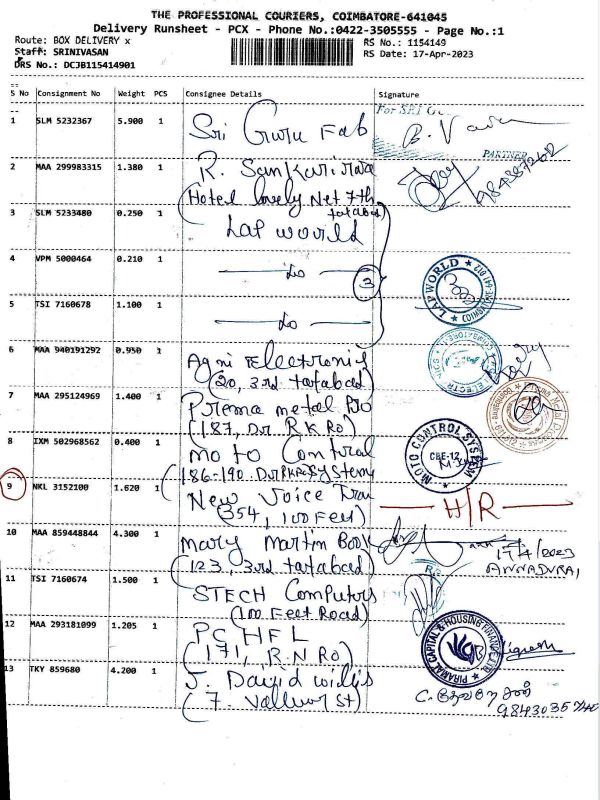 THE PROFESSIONAL COURIERS, COIMBATORE-641045
Delivery Runsheet - PCX - Phone No.:0422-3505555 - Page No.:1
Route: BOX DELIVERY x RS No.: 1154149
Staff: SRINIVASAN RS Date: 17-Apr-2023
DRS No.: DCJB115414901
S No Consignment No Weight PCS Consignee Details Signature
For SRI
1 SLM 5232367 5.900 1 Sri Guru Fab
PARTNER
2 MAA 299983315 1.380 1 R. Sankari
(Hotel lovely Net 7th
tatabad)
3 SLM 5233480 0.250 1 Lap world
4 VPM 5000464 0.210 1 do 3 LAP WORLD
5 TSI 7160678 1.100 1 do
6 MAA 940191292 0.950 1 Agni Electronics
(20, 3rd tatabad)
7 MAA 295124969 1.400 1 Prema metal
(187, Dr R K Ro)
8 IXM 502968562 0.400 1 Moto Control MOTO CONTROL SYSTEM
CBE-12
(186-190 Dr RK Ro System
9 NKL 3152100 1.620 1 New Voice H/R
(354, 100 Feet)
10 MAA 859448844 4.300 1 Mary Martin Book 17/4/2023
(123, 3rd tatabad) ANNADURAI
11 TSI 7160674 1.500 1 STECH Computers
(100 Feet Road)
12 MAA 293181099 1.205 1 PCHFL PIRAMAL CAPITAL & HOUSING FINANCE LTD
(171, R.N Ro) Vignesh
13 TKY 859680 4.200 1 J. David willis
(7. Valluvar St) 9843035746